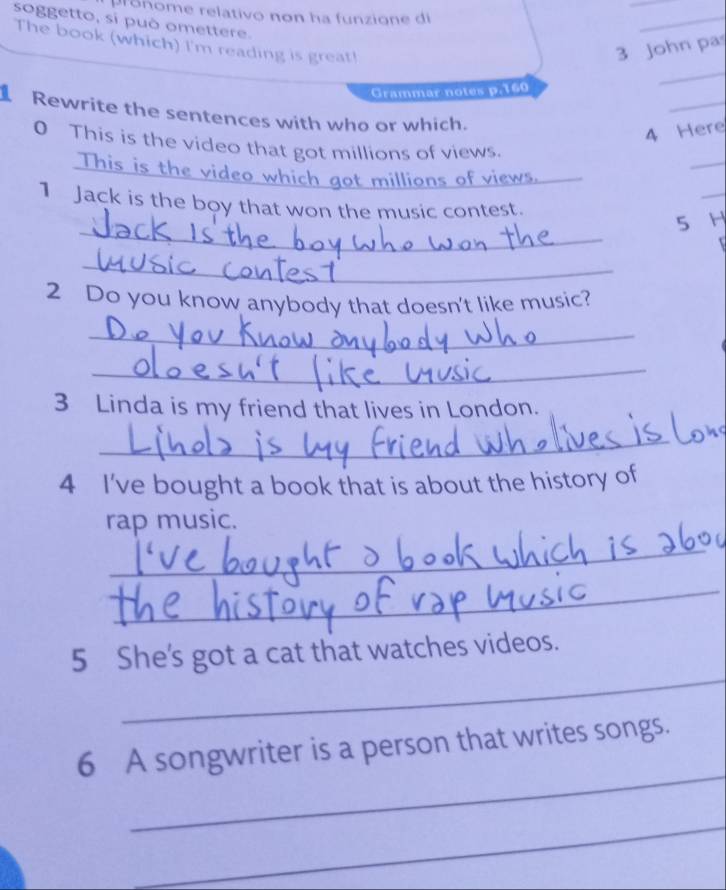 pronome relativo non ha funzione di
soggetto, si può omettere.
The book (which) I'm reading is great!
Grammar notes p.160
1 Rewrite the sentences with who or which.
0 This is the video that got millions of views.
This is the video which got millions of views.
1 Jack is the boy that won the music contest.
Jack is the boy who won the
music contest
2 Do you know anybody that doesn't like music?
Do you know anybody who
doesn't like music
3 Linda is my friend that lives in London.
Linda is my friend who lives is Lon
4 I've bought a book that is about the history of
rap music.
I've bought a book which is abou
the history of rap music
5 She's got a cat that watches videos.
6 A songwriter is a person that writes songs.
3 John pas
4 Here
5 H